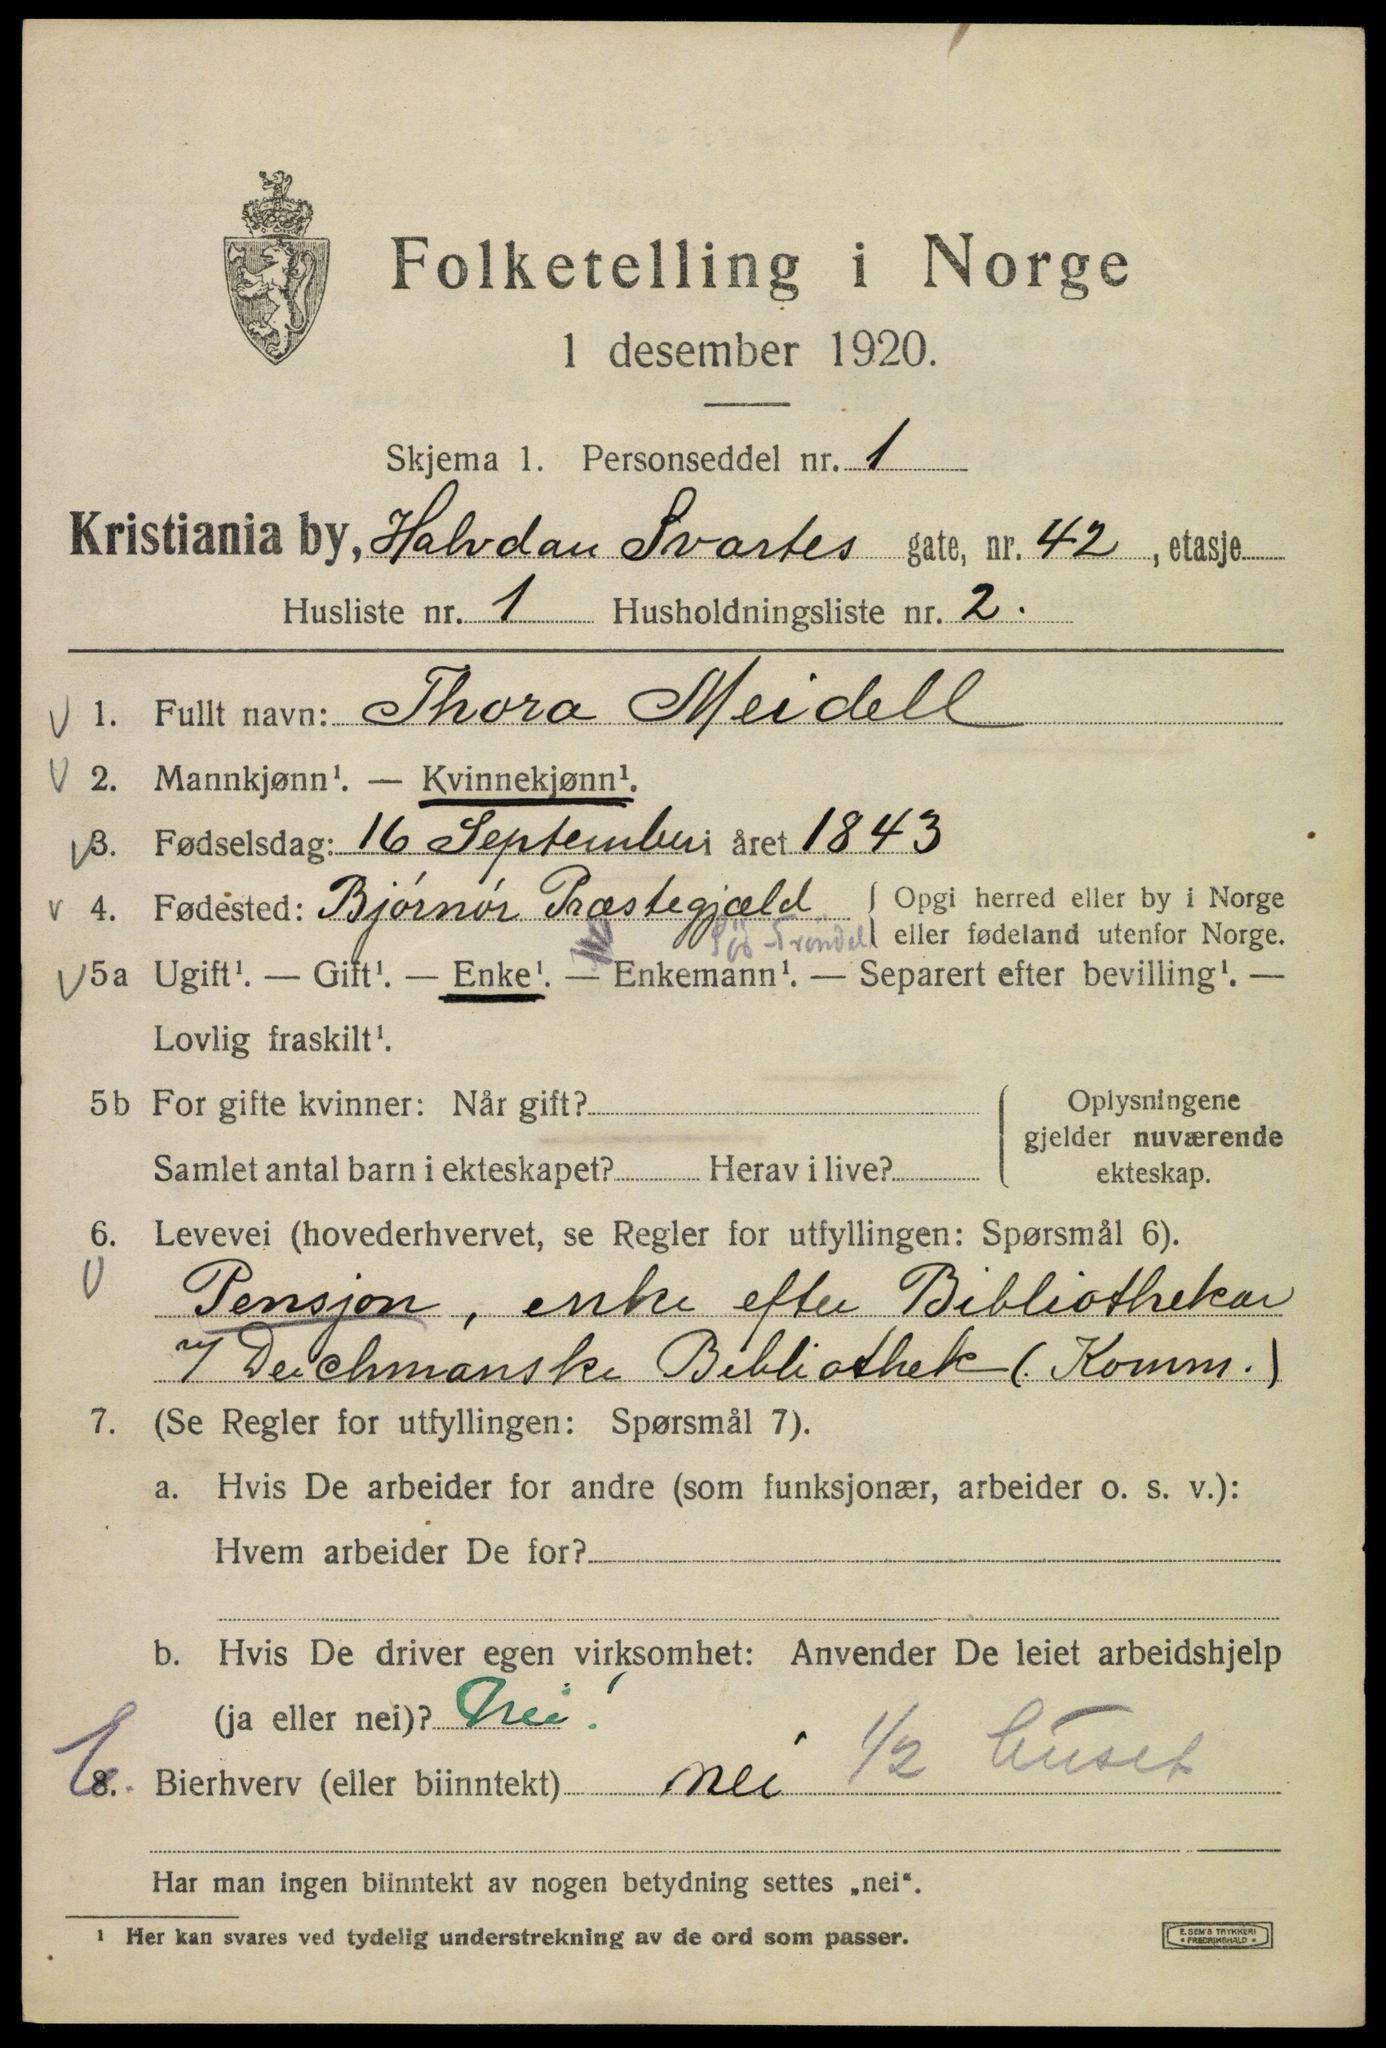 Folketelling i Norge
1 desember 1920.
Skjema 1. Personseddel nr. 1
Kristiania by, Halvdan Svartes gate, nr. 42, etasje
Husliste nr. 1 Husholdningsliste nr. 2.
v 1. Fullt navn: Thora Meidell
v 2. Mannkjønn¹. — Kvinnekjønn¹.
v 3. Fødselsdag: 16 September i året 1843
v 4. Fødested: Bjørnør Præstegjæld { Opgi herred eller by i Norge
Sø Trøndel eller fødeland utenfor Norge.
v 5a Ugift¹. — Gift¹. — Enke¹. — Enkemann¹. — Separert efter bevilling¹. —
Lovlig fraskilt¹.
5b For gifte kvinner: Når gift? { Oplysningene
gjelder nuværende
Samlet antal barn i ekteskapet? Herav i live? ekteskap.
6. Levevei (hovederhvervet, se Regler for utfyllingen: Spørsmål 6).
v Pensjon, enke efter Bibliothekar
v/ Deichmanske Bibliothek (Komm.)
7. (Se Regler for utfyllingen: Spørsmål 7).
a. Hvis De arbeider for andre (som funksjonær, arbeider o. s. v.):
Hvem arbeider De for?
b. Hvis De driver egen virksomhet: Anvender De leiet arbeidshjelp
(ja eller nei)? Nei!
8. Bierhverv (eller biinntekt) nei 1/2 huset
Har man ingen biinntekt av nogen betydning settes „nei“.
¹ Her kan svares ved tydelig understrekning av de ord som passer.
E. SEM'S TRYKKERI
• FREDRIKSHALD •